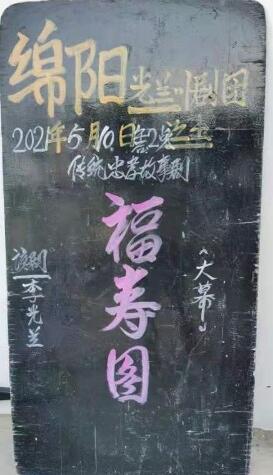 绵阳光兰川剧团
2021年5月10日售2元之上
传统忠孝故事剧
福寿图
《大幕》
演剧
李光兰